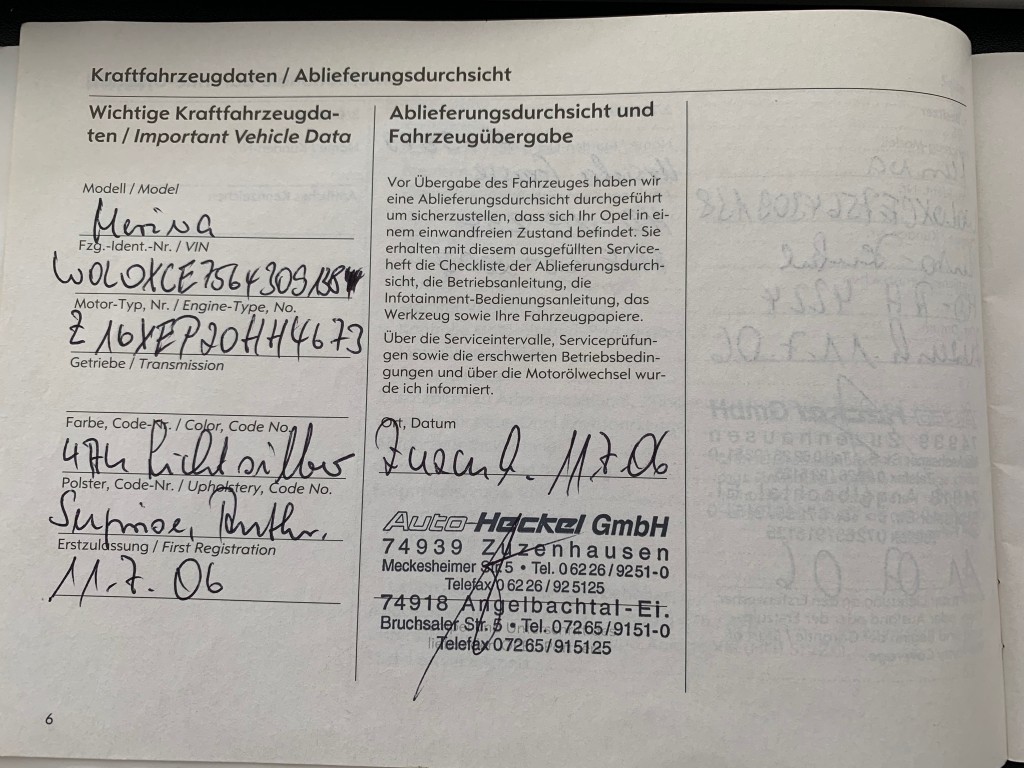 Kraftfahrzeugdaten / Ablieferungsdurchsicht
Wichtige Kraftfahrzeugda-
ten / Important Vehicle Data
Modell / Model
Meriva
Fzg.-Ident.-Nr. / VIN
Motor-Typ, Nr. / Engine-Type, No.
Z16XEP20HH4673
Getriebe / Transmission
Farbe, Code-Nr. / Color, Code No.
Lichtsilber
Polster, Code-Nr. / Upholstery, Code No.
Surprise,
Erstzulassung / First Registration
11.7.06
Ablieferungsdurchsicht und
Fahrzeugübergabe
Vor Übergabe des Fahrzeuges haben wir
eine Ablieferungsdurchsicht durchgeführt
um sicherzustellen, dass sich Ihr Opel in ei-
nem einwandfreien Zustand befindet. Sie
erhalten mit diesem ausgefüllten Service-
heft die Checkliste der Ablieferungsdurch-
sicht, die Betriebsanleitung, die
Infotainment-Bedienungsanleitung, das
Werkzeug sowie Ihre Fahrzeugpapiere.
Über die Serviceintervalle, Serviceprüfun-
gen sowie die erschwerten Betriebsbedin-
gungen und über die Motorölwechsel wur-
de ich informiert.
Ort, Datum
11.7.06
Auto-Heckel GmbH
74939 Zuzenhausen
Meckesheimer Str. 5 • Tel. 06226/9251-0
Telefax 06226/925125
74918 Angelbachtal-Ei.
Bruchsaler Str. 5 • Tel. 07265/9151-0
Telefax 07265/915125
6